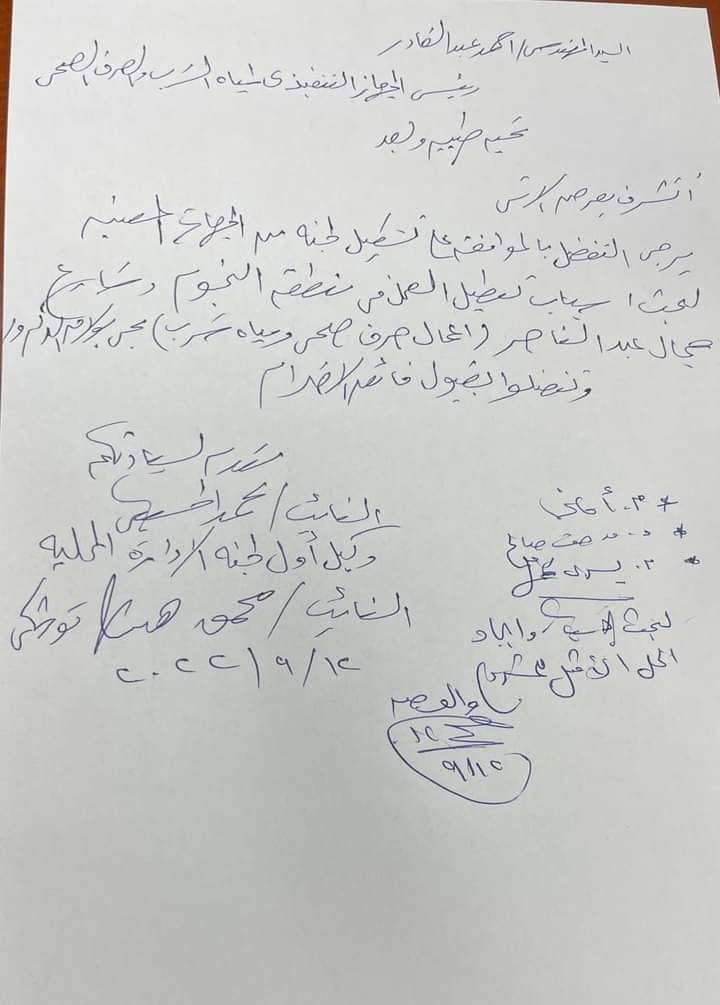 السيد المهندس / احمد عبد القادر
رئيس الجهاز التنفيذى لمياه الشرب والصرف الصحى
تحيه طيبه وبعد
أتشرف بعرض الاتى
يرجى التفضل بالموافقه على تشكيل لجنه من الجهات المعنيه
لبحث اسباب تعطيل العمل فى منطقه النجوم وشارع
جمال عبد الناصر (اعمال صرف صحى ومياه شرب) بحى
وتفضلوا بقبول فائق الاحترام
مقدم لسيادتكم
النائب / محمد الحسينى
وكيل أول لجنه الادارة المحليه
النائب / محمود
٢٠٢٢/٩/١٢
* م. أمانى
* م. صالح
* م. يسرى
لبحث الأسباب وايجاد
الحل الأمثل
والعرض
٩/١٢